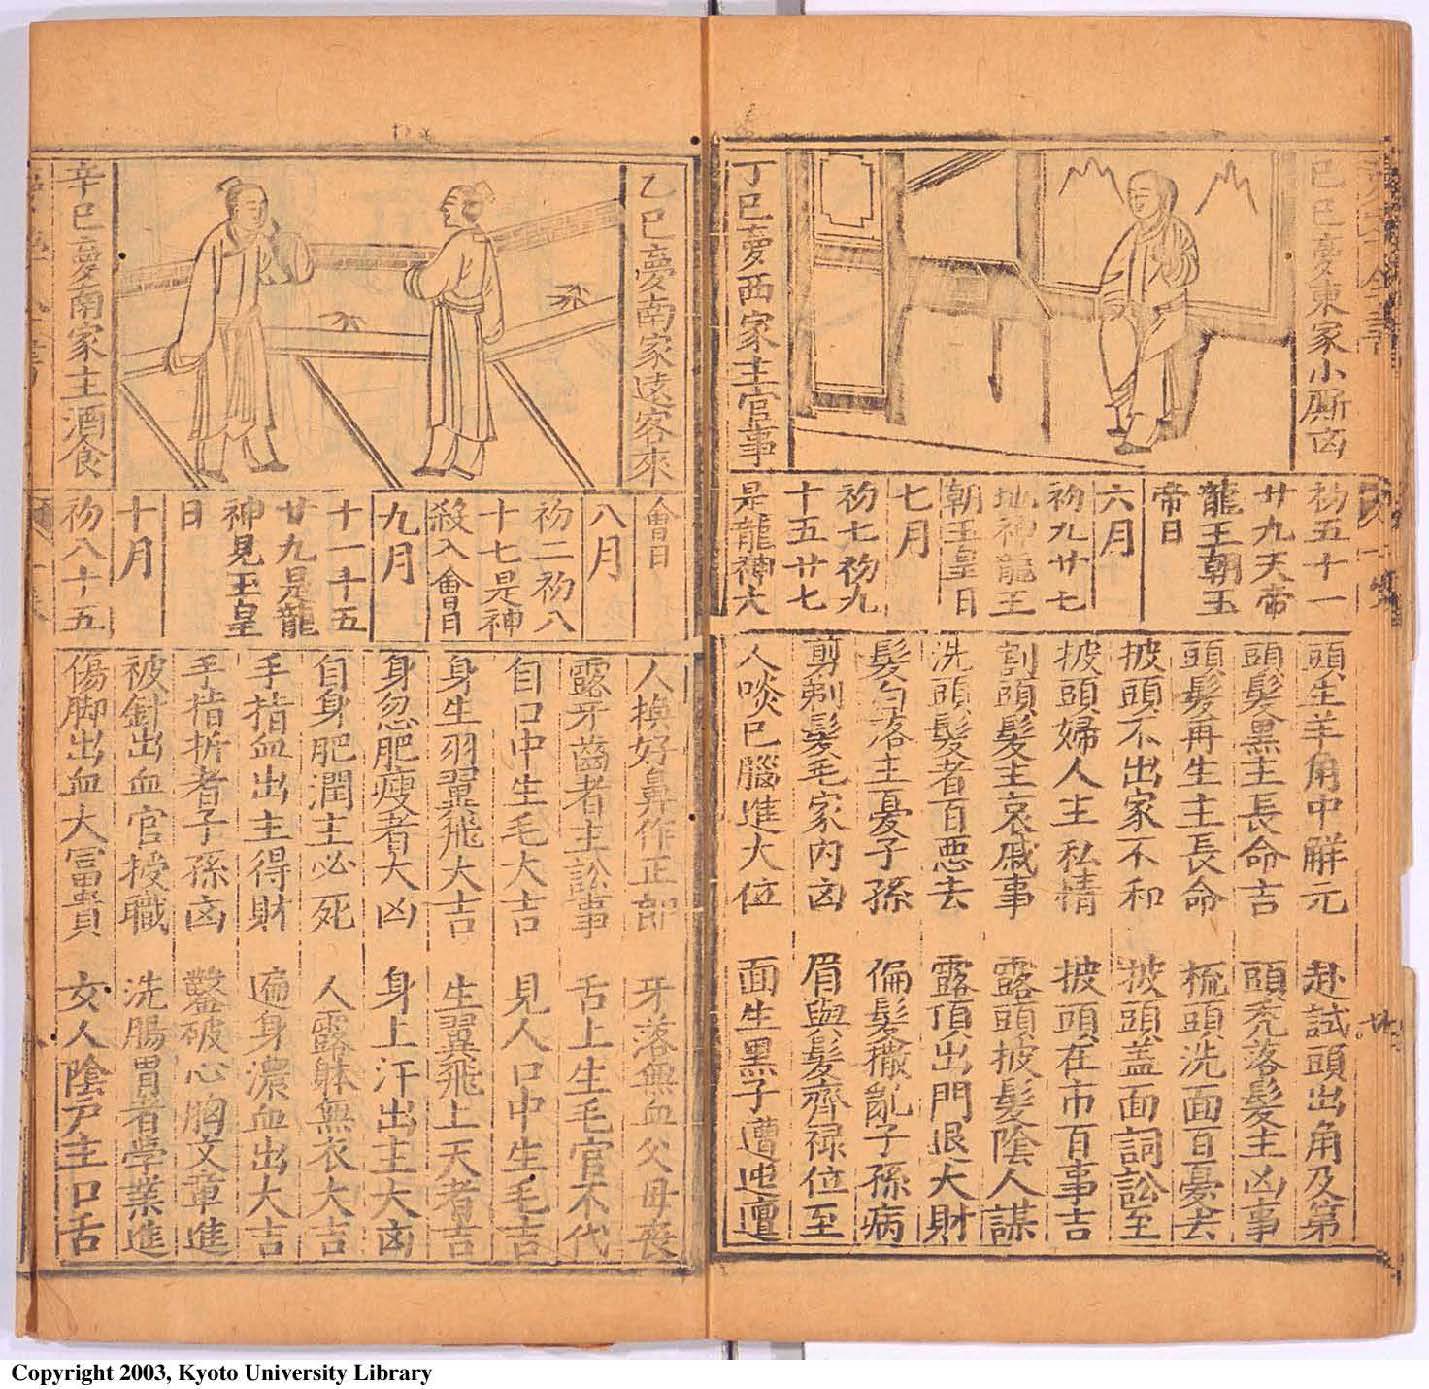 己巳夢東家小厮凶
丁巳夢西家主官事
初五十一
廿九天帝
龍王朝玉
帝日
六月
初九廿七
地神龍王
朝玉皇日
七月
初七初九
十五廿七
是龍神大
頭生羊角中觧元
赴試頭出角及第
頭髮黒主長命吉
頭禿落髮主凶事
頭髮再生主長命
梳頭洗面百憂去
披頭不出家不和
披頭盖面詞訟至
披頭婦人主私情
披頭在市百事吉
割頭髮主哀戚事
露頭披髮陰人謀
洗頭髮者百悪去
露頂出門退大財
髮白落主憂子孫
偏髮撒亂子孫病
剪剃髮毛家内凶
眉與髮齊禄位至
人啖已腦進大位
面生黒子遭迍邅
乙巳夢南家遠客來
辛巳夢南家主酒食
會日
八月
初二初八
十七是神
殺入會日
九月
十一十五
廿九是龍
神見玉皇
日
十月
初八十五
人換好鼻作正郎
牙落無血父母喪
露牙齒者主訟事
舌上生毛官不代
自口中生毛大吉
見人口中生毛吉
身生羽翼飛大吉
生翼飛上天者吉
身忽肥瘦者大凶
身上汗出主大凶
自身肥潤主必死
人露躰無衣大吉
手指血出主得財
遍身濃血出大吉
手指折者子孫凶
鑿破心胸文章進
被針出血官授職
洗腸胃者学業進
傷脚出血大冨貴
女人陰戸主口舌
Copyright 2003, Kyoto University Library